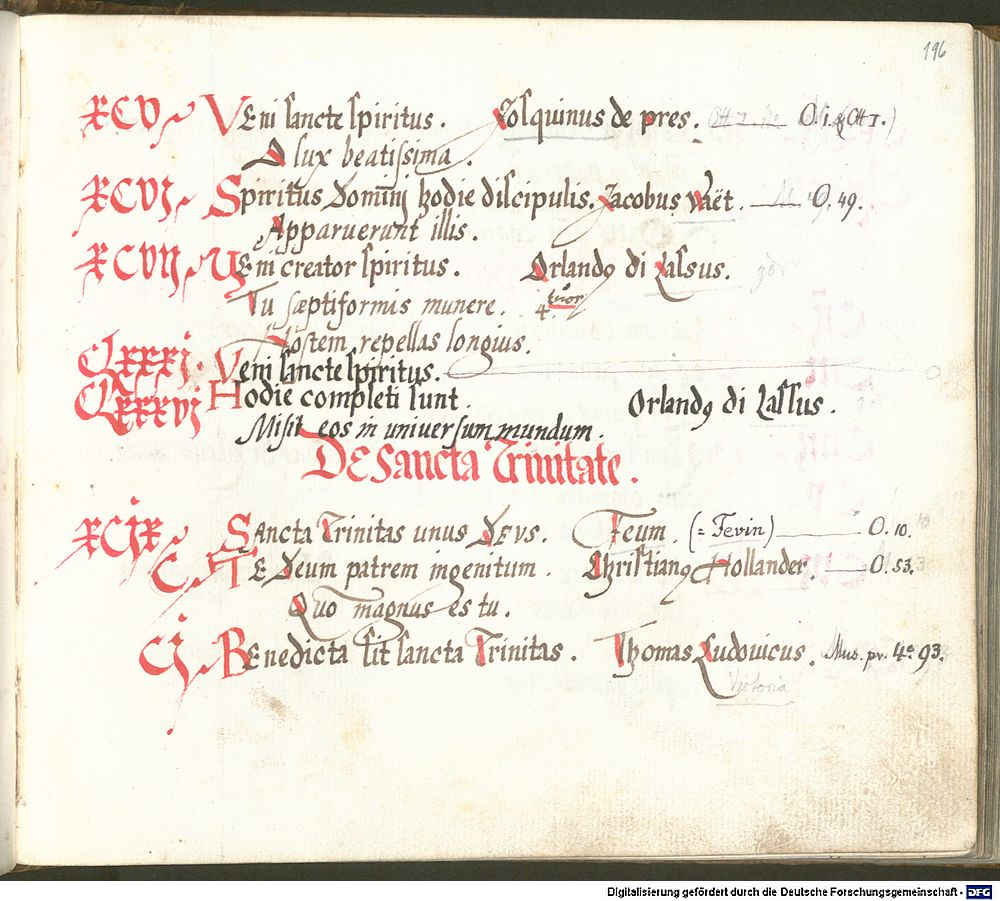 196
XCV Veni sancte spiritus. Josquinus de pres. O. 1. & Ott 1.)
O lux beatissima.
XCVI Spiritus Domini hodie discipulis. Jacobus Vaët. O. 49.
Apparuerunt illis.
XCVII Veni creator spiritus. Orlandꝯ di Lassus.
Tu sæptiformis munere. 4 tuor
Hostem repellas longius.
CLXXXI. Veni sancte spiritus.
CLXXXVI Hodie completi sunt. Orlandꝯ di Lassus.
Misit eos in universum mundum.
De Sancta Trinitate.
XCIX Sancta Trinitas unus Deus. Feum. (= Fevin) O. 10.
C. Te Deum patrem ingenitum. Christianꝯ Hollander. O. 53.
Quo magnus es tu.
CI. Benedicta sit sancta Trinitas. Thomas Ludovicus. Mus. pr. 4° 93.
Victoria
Digitalisierung gefördert durch die Deutsche Forschungsgemeinschaft - DFG